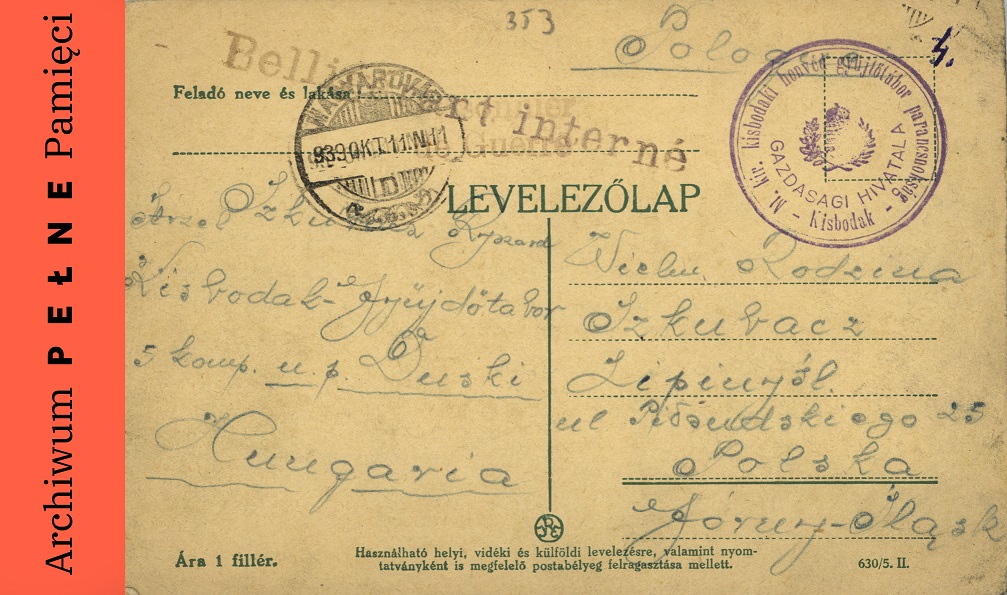 Archiwum PEŁNE Pamięci
353
Polog
4.
Feladó neve és lakása
Belli rt interné
de Guerre
MAGYARÓVÁR
939 OKT 11 N 11
D
M. kir. kisbodaki honvéd gyűjtőtábor parancnokság
GAZDASÁGI HIVATALA
- Kisbodak - 9
LEVELEZŐLAP
Ryszard
Kisbodak-Gyüjdőtabor
5 komp. u. p. Duski
Hungaria
Wielm. Rodzina
Szkubacz
Lipinyśl.
ul Piłsudskiego 25
Polska
Górny-Śląsk
Ára 1 fillér.
Használható helyi, vidéki és külföldi levelezésre, valamint nyom-
tatványként is megfelelő postabélyeg felragasztása mellett.
630/5. II.